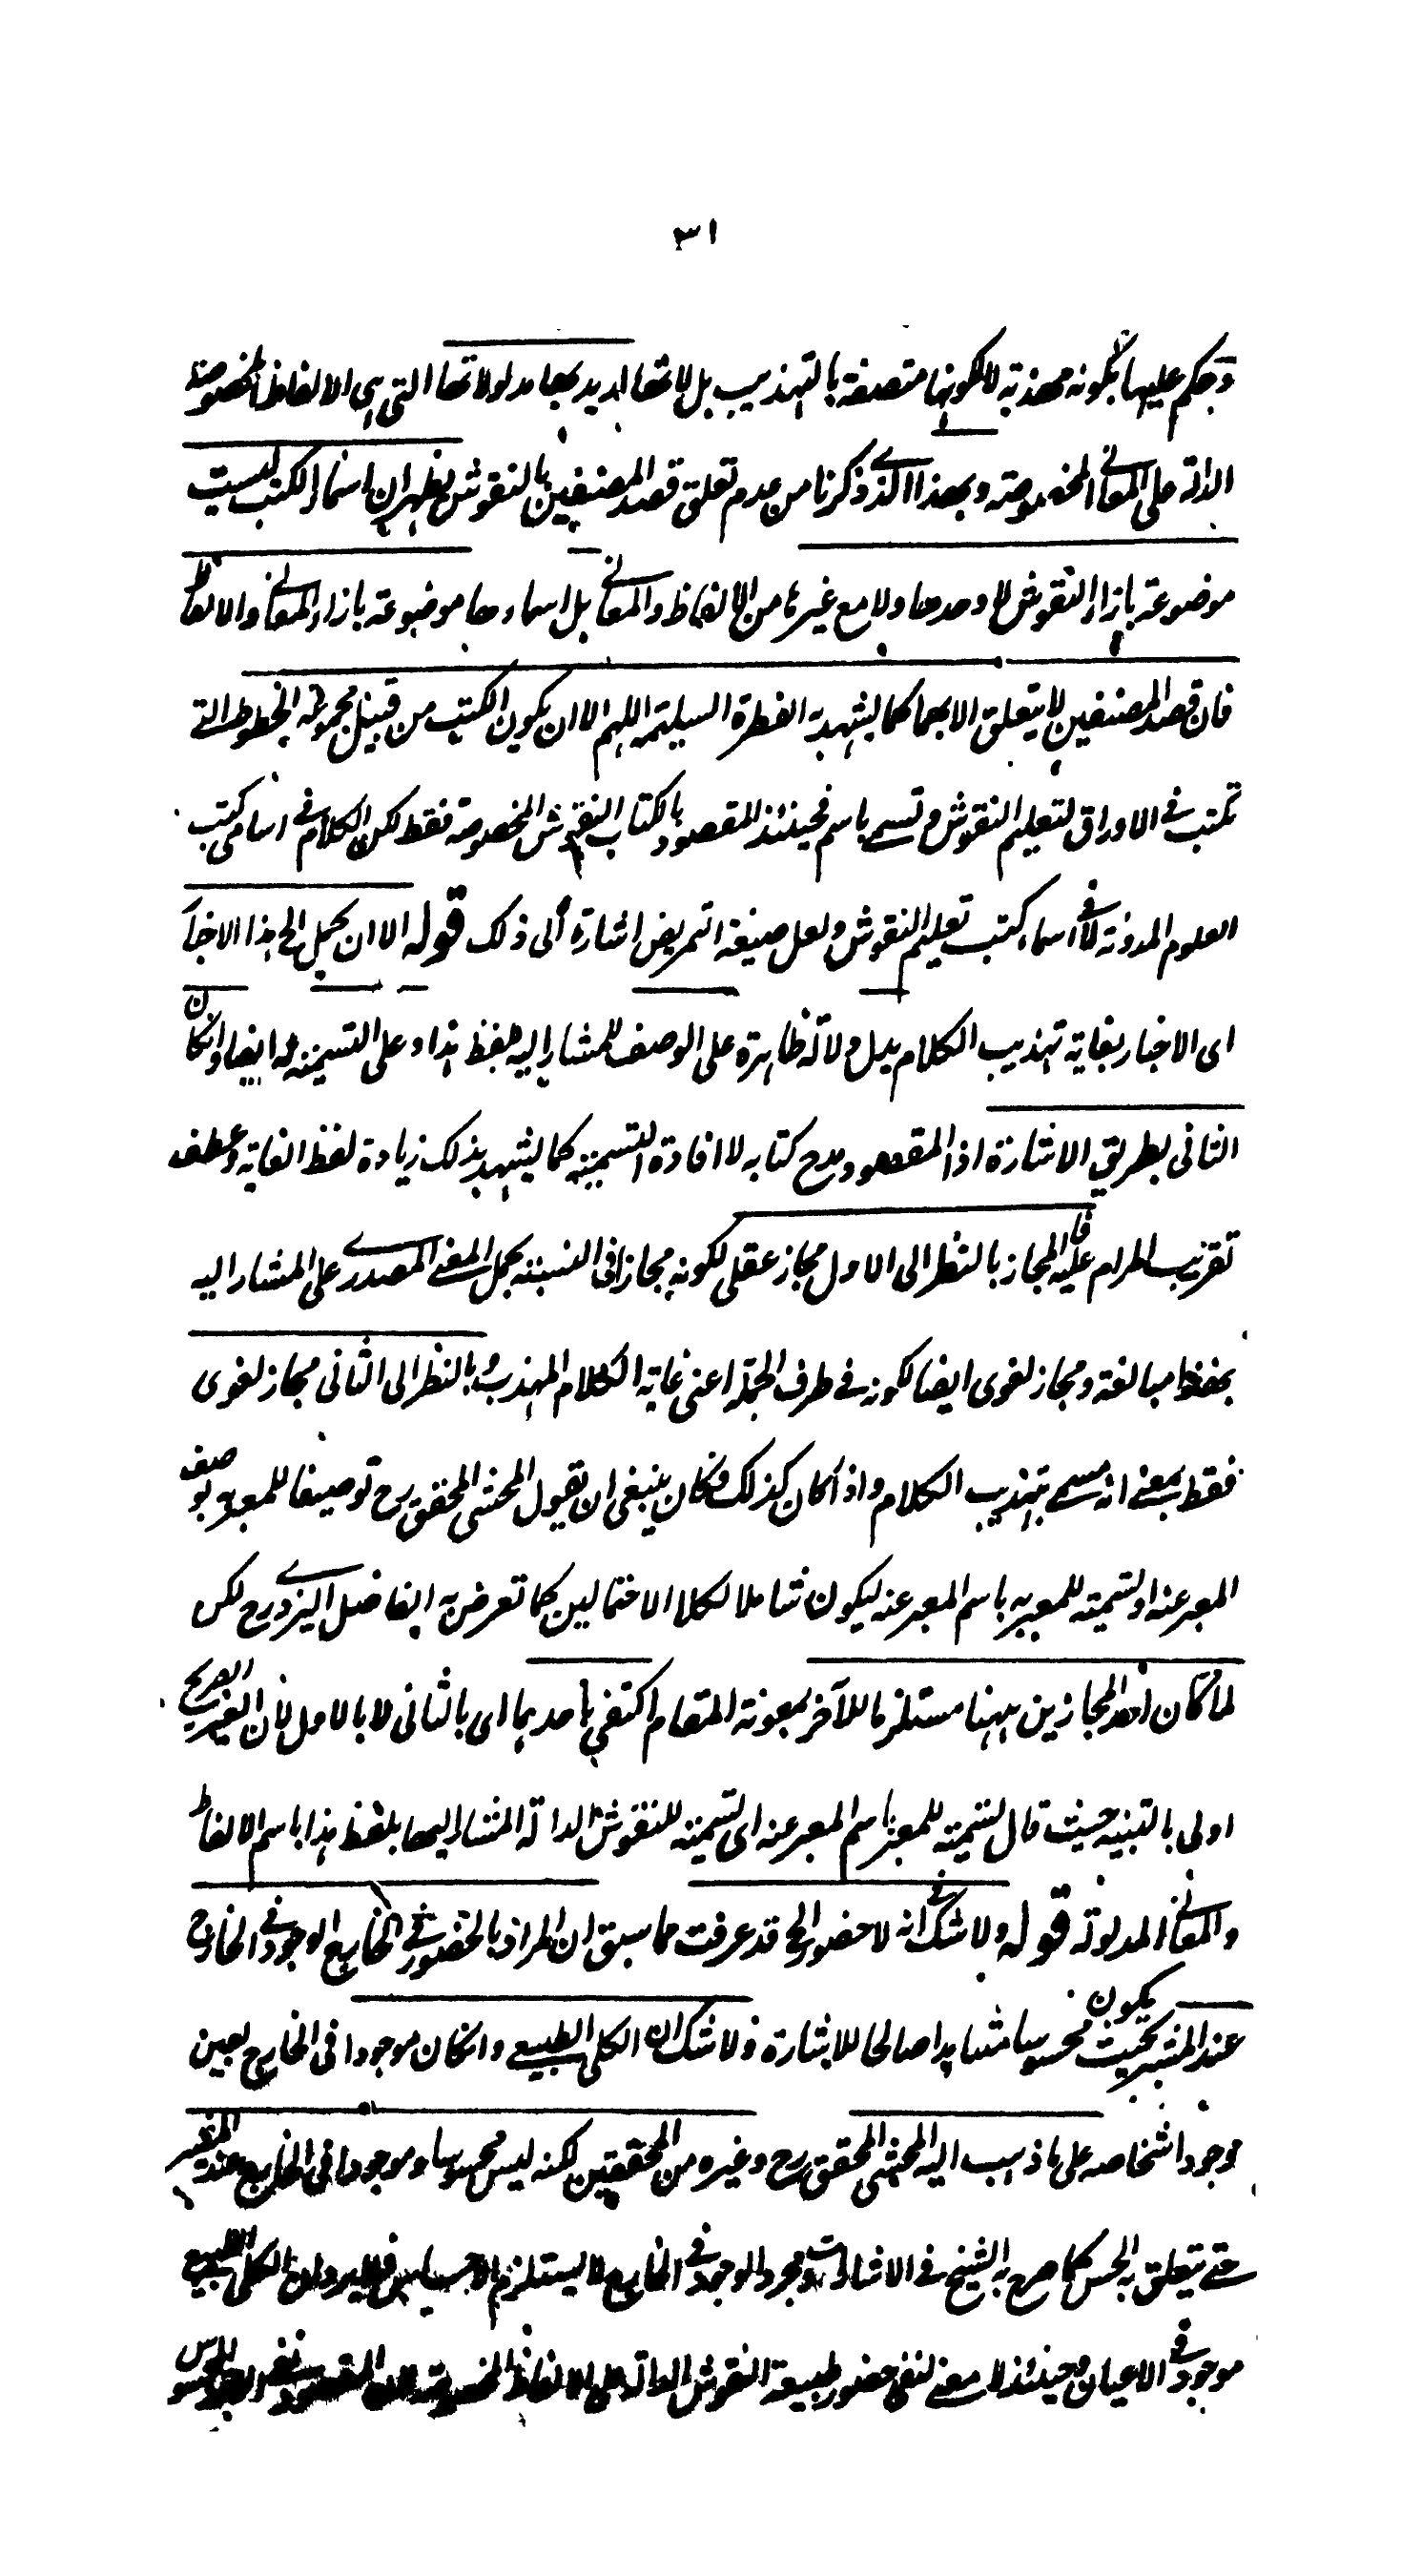 ٣١
وحكم عليها بكونه مهذبة لا لكونها متصفة بالتهذيب بل لانها اريد بها مدلولاتها التى هى الالفاظ المخصوصة
الدالة على المعانى المخصوصة وبهذا الذى ذكرنا من عدم تعلق قصد المصنفين بالنقوش يظهر ان اسماء الكتب ليست
موضوعة بازاء النقوش لا وحدها ولا مع غيرها من الالفاظ والمعانى بل اسماءها موضوعة بازاء المعانى والالفاظ
فان قصد المصنفين لا يتعلق الا بهما كما يشهد به الفطرة السليمة اللهم الا ان يكون الكتب من قبيل مجموعة الخطوط التى
تكتب فى الاوراق لتعليم النقوش وتسمى باسم فحينئذ المقصود بالكتاب النقوش المخصوصة فقط لكن الكلام فى اسامى كتب
العلوم المدونة لا فى اسماء كتب تعليم النقوش ولعل صيغة التمريض اشارة الى ذلك قوله الا ان يحمل الخ هذا الاخبار
اى الاخبار بغاية تهذيب الكلام يدل دلالة ظاهرة على الوصف للمشار اليه بلفظ هذا وعلى التسمية له ايضا وان كان
الثانى بطريق الاشارة اذ المقصود مدح كتابه لا افادة التسمية كما يشهد بذلك زيادة لفظ الغاية وعطف
تقريب المرام عليه فالمجاز بالنظر الى الاول مجاز عقلى لكونه مجازا فى النسبة بحمل المعنى المصدرى على المشار اليه
بلفظ هذا مبالغة ومجاز لغوى ايضا لكونه فى طرف الجملة اعنى غاية الكلام المهذب وبالنظر الى الثانى مجاز لغوى
فقط بمعنى انه مسمى بتهذيب الكلام واذا كان كذلك فكان ينبغى ان يقول المحشى المحقق رح توصيفا للمعبر به بوصف
المعبر عنه او تسمية للمعبر به باسم المعبر عنه ليكون شاملا لكلا الاحتمالين كما تعرض به الفاضل اليزدى رح لكن
لما كان احد المجازين ههنا مستلزما للآخر بمعونة المقام اكتفى باحدهما اى بالثانى لا بالاول لان الغير الصريح
اولى بالتنبيه حيث قال تسمية للمعبر باسم المعبر عنه اى تسمية للنقوش الدالة المشار اليها بلفظ هذا باسم الالفاظ
والمعانى المدلولة قوله ولا شك فى انه لا حضور الخ قد عرفت مما سبق ان المراد بالحضور فى الخارج الوجود فى الخارج
عند المشير بحيث يكون محسوسا مشاهدا صالحا للاشارة ولا شك ان الكلى الطبيعى وان كان موجودا فى الخارج بعين
وجود اشخاصه على ما ذهب اليه المحشى المحقق رح وغيره من المحققين لكنه ليس محسوسا وموجودا فى الخارج عند المشير
حتى يتعلق به الحس كما صرح به الشيخ فى الاشارات ومجرد الوجود فى الخارج لا يستلزم الكلى الطبيعى
موجود فى الاعيان وحينئذ لا معنى لنفى حضور طبيعة النقوش الدالة على الالفاظ المخصوصة